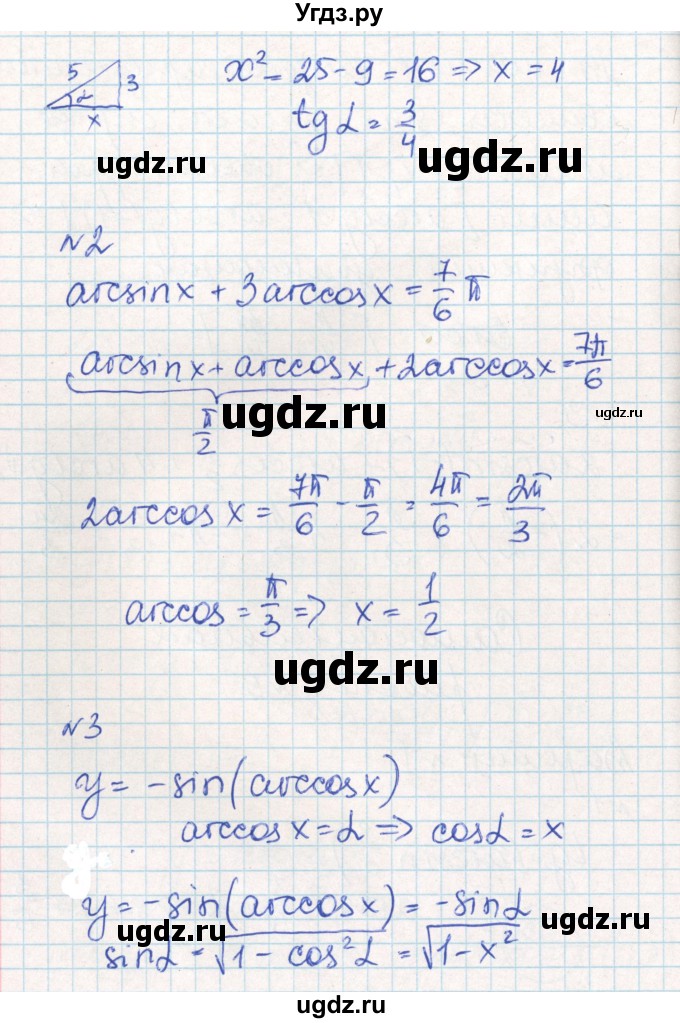 Угдз.ру
5 3 α x
x² = 25 - 9 = 16 => x = 4
tg α = 3/4
ugdz.ru ugdz.ru
№2
arcsin x + 3 arccos x = 7/6 π
arcsin x + arccos x + 2 arccos x = 7π/6
π/2
ugdz.ru ugdz.ru
2 arccos x = 7π/6 - π/2 = 4π/6 = 2π/3
arccos = π/3 => x = 1/2
ugdz.ru
№3
y = -sin(arccos x)
arccos x = α => cos α = x
y = -sin(arccos x) = -sin α
ugdz.ru ugdz.ru
sin α = √1 - cos² α = √1 - x²
ugdz.ru